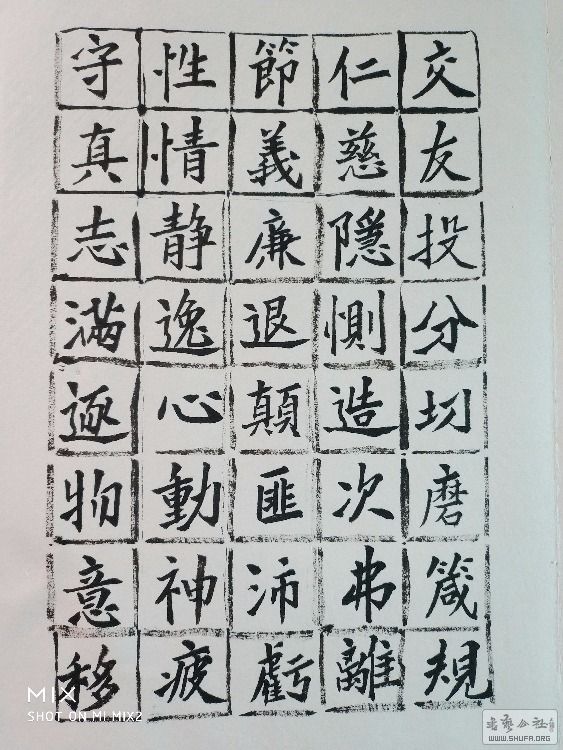 交友投分切磨箴規
仁慈隱惻造次弗離
節義廉退顛匪沛虧
性情静逸心動神疲
守真志滿逐物意移
MIX
SHOT ON MI MIX2
书艺公社
WWW.SHUFA.ORG